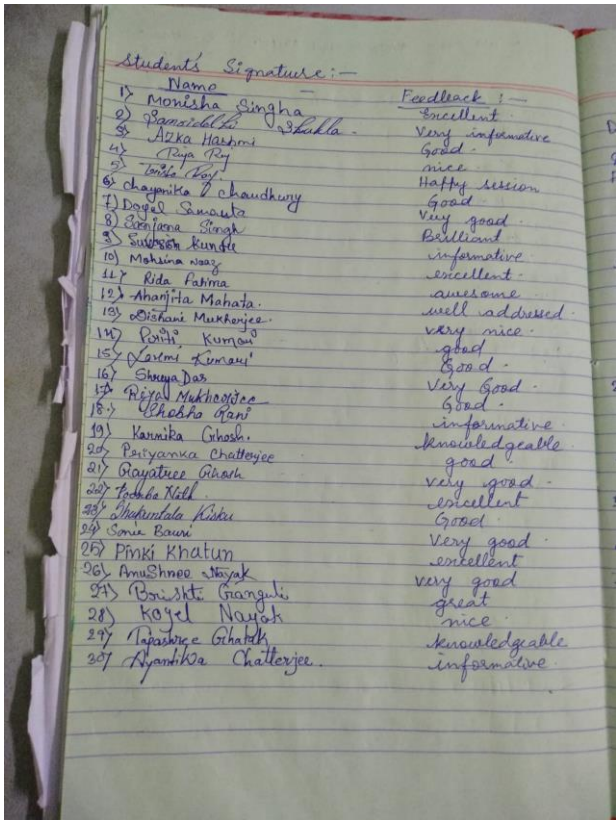 Students Signature :—
Name Feedback :—
1) Monisha Singha Excellent
2) Shukla Very informative
3) Azka Hashmi Good
4) Riya Roy nice
5) Roy Happy session
6) Chayanika Chaudhury Good
7) Doyel Samanta Very good
8) Sanjana Singh Brilliant
9) Kundu informative
10) Mohsina Naaz excellent
11) Rida Fatima awesome
12) Mahata well addressed
13) Dishani Mukherjee very nice
14) Priti Kumari good
15) Kumari Good
16) Shreya Das Very Good
17) Riya Mukherjee Good
18) Shobha Rani informative
19) Karnika Ghosh knowledgeable
20) Priyanka Chatterjee good
21) Gayatree Ghosh very good
22) Nath excellent
23) Shakuntala Kisku Good
24) Sonia Bauri Very good
25) Pinki Khatun excellent
26) Anushree Nayak very good
27) Brishti Ganguli great
28) Koyel Nayak nice
29) Tapashree Ghatak knowledgeable
30) Ayantika Chatterjee informative